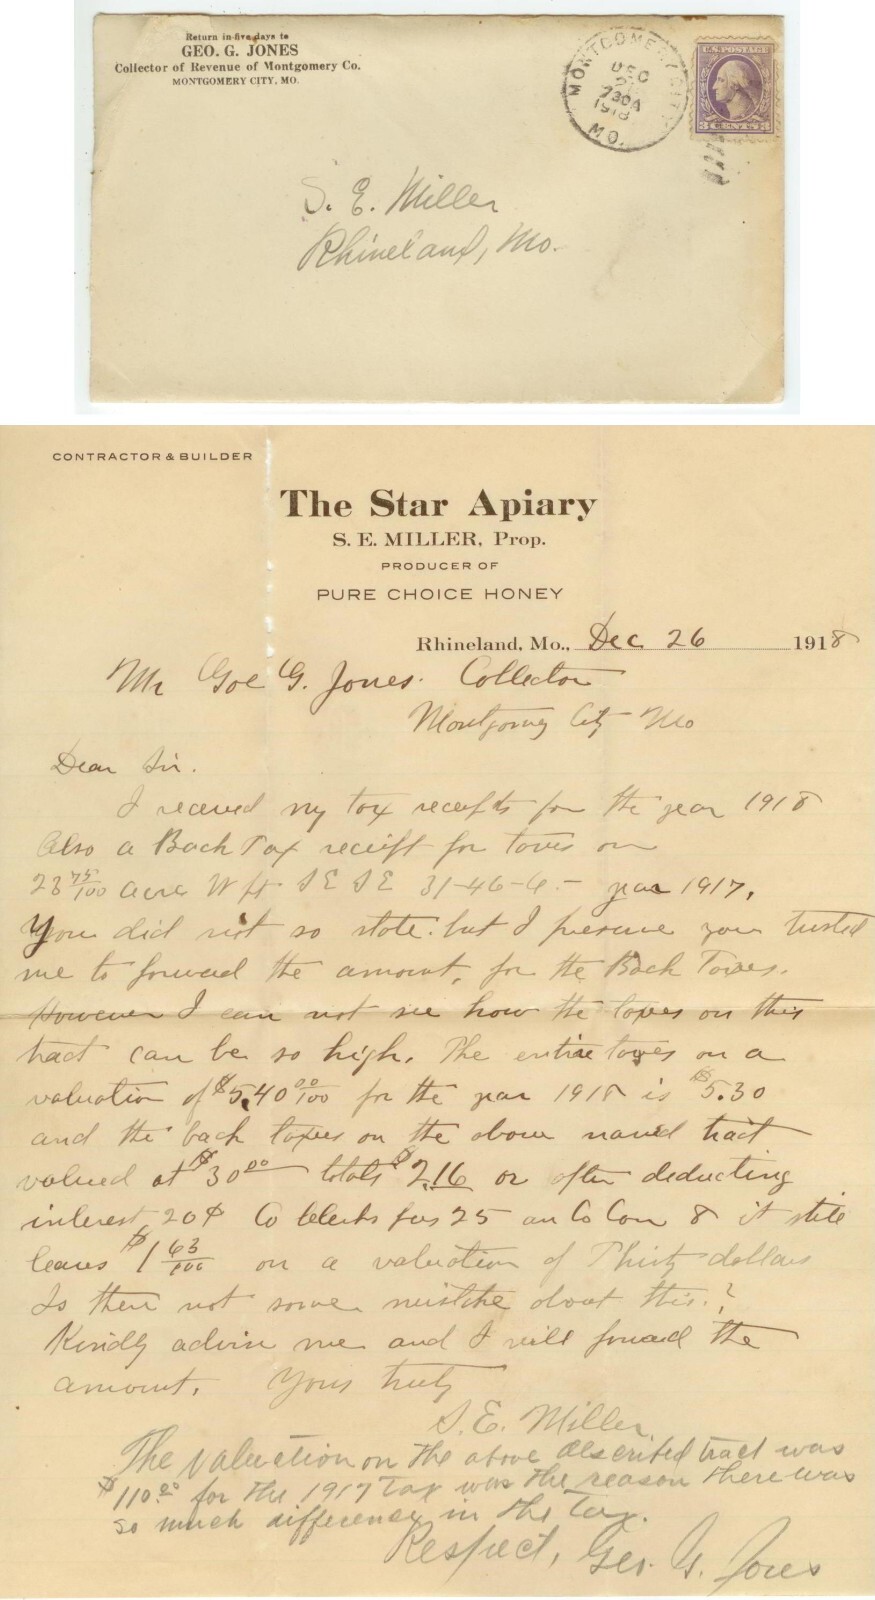 Return in five days to
GEO. G. JONES
Collector of Revenue of Montgomery Co.
MONTGOMERY CITY, MO.
MONTGOMERY CITY
DEC
730A
1918
MO.
U.S. POSTAGE
3 CENTS 3
S. E. Miller
Rhineland, Mo.
CONTRACTOR & BUILDER
The Star Apiary
S. E. MILLER, Prop.
PRODUCER OF
PURE CHOICE HONEY
Rhineland, Mo., Dec 26 1918
Mr Goe G. Jones. Collector
Montgomry City Mo
Dear Sir.
I receved my tax receipts for the year 1918
Also a Back Tax receipt for taxes on
23 75/100 acres W pt S E S E 31-46-6 - year 1917.
You did not so state. but I presume you trusted
me to forward the amount, for the Back Taxes.
However I can not see how the taxes on this
tract can be so high. The entire taxes on a
valuation of $5.40 00/100 for the year 1918 is $5.30
and the back taxes on the above named tract
valued at $30 00 totals $2.16 or after deducting
interest 20¢ Co Clerks fees 25 an Co Com 8 it still
leaves $1 63/100 on a valuation of Thirty dollars
Is there not some mistake about this.?
Kindly advise me and I will forward the
amount. Yours truly
S. E. Miller
The valuation on the above described tract was
$110.00 for the 1917 tax was the reason there was
so much difference in the tax.
Respect, Geo. G. Jones